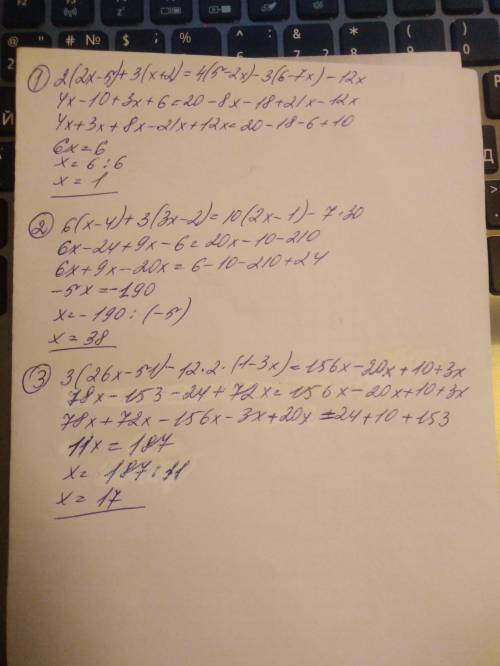 ① 2(2x-5)+3(x+2)=4(5-2x)-3(6-7x)-12x
4x-10+3x+6=20-8x-18+21x-12x
4x+3x+8x-21x+12x=20-18-6+10
6x=6
x=6:6
x=1
② 6(x-4)+3(3x-2)=10(2x-1)-7·30
6x-24+9x-6=20x-10-210
6x+9x-20x=6-10-210+24
-5x=-190
x=-190:(-5)
x=38
③ 3(26x-51)-12·2·(1-3x)=156x-20x+10+3x
78x-153-24+72x=156x-20x+10+3x
78x+72x-156x-3x+20x=24+10+153
11x=187
x=187:11
x=17